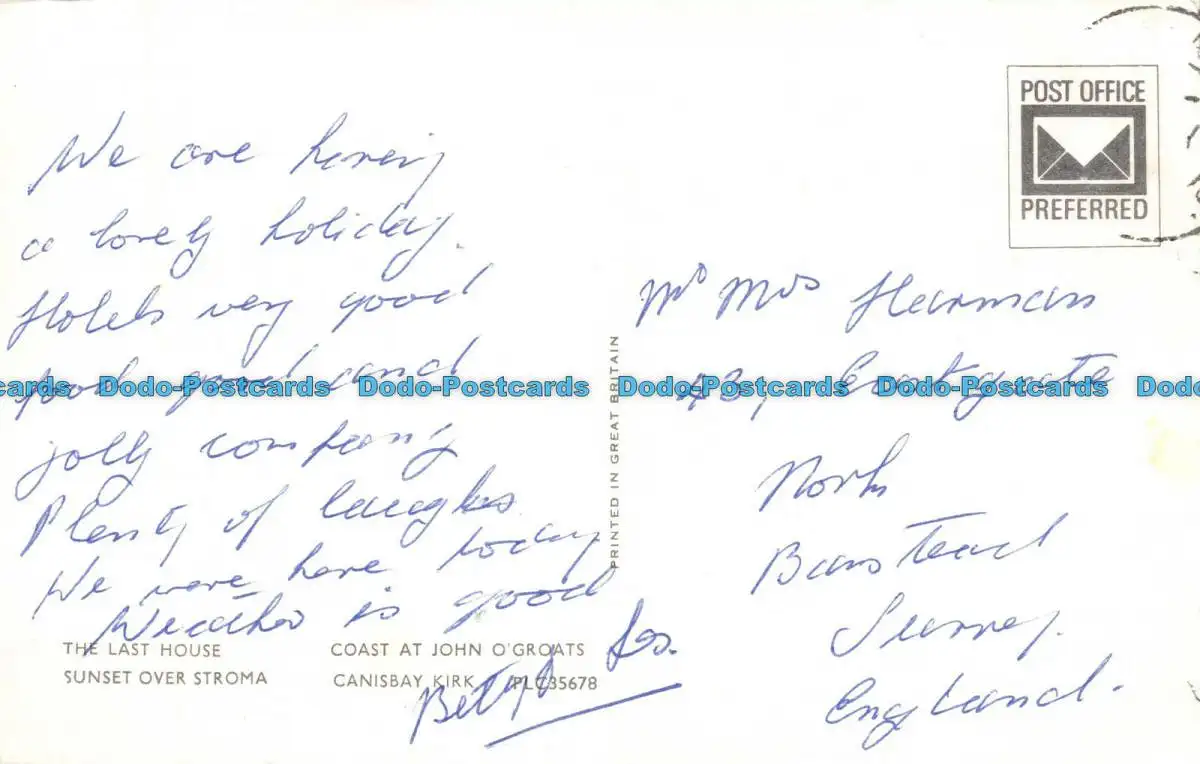 We are having
a lovely holiday.
Hotels very good
food good and
jolly company
Plenty of laughs
We were here today
Weather is good
Betty & Les.
THE LAST HOUSE
SUNSET OVER STROMA
COAST AT JOHN O'GROATS
CANISBAY KIRK PLC35678
PRINTED IN GREAT BRITAIN
POST OFFICE
PREFERRED
Mr Mrs Harman
43,
Nork
Banstead
Surrey.
England.
cards Dodo-Postcards Dodo-Postcards Dodo-Postcards Dodo-Postcards Dodo